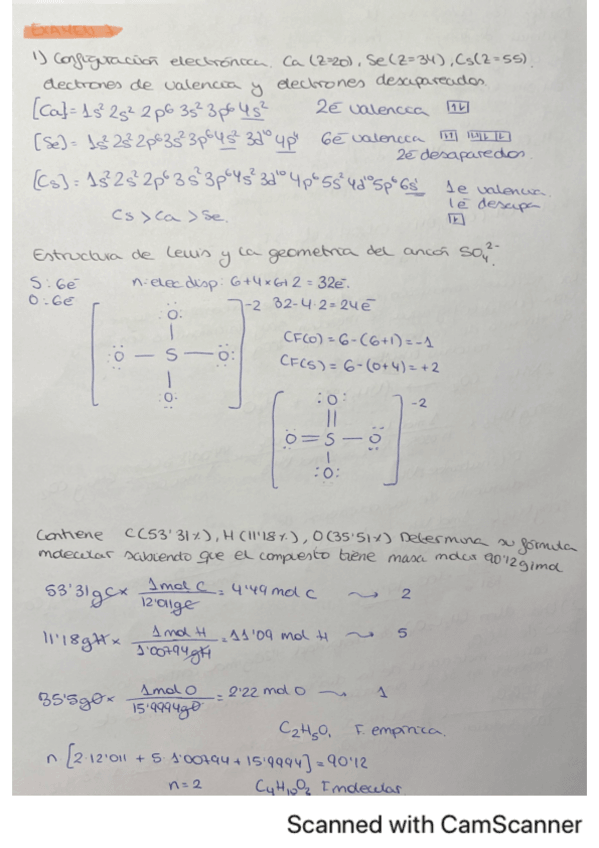 EXAMEN 1
1) Configuración electrónica. Ca (Z=20), Se (Z=34), Cs (Z=55).
electrones de valencia y electrones desapareados.
[Ca]= 1s² 2s² 2p⁶ 3s² 3p⁶ 4s² 2e⁻ valencia
[Se]= 1s² 2s² 2p⁶ 3s² 3p⁶ 4s² 3d¹⁰ 4p⁴ 6e⁻ valencia
2e⁻ desaparedos.
[Cs]= 1s² 2s² 2p⁶ 3s² 3p⁶ 4s² 3d¹⁰ 4p⁶ 5s² 4d¹⁰ 5p⁶ 6s¹ 1e valencia.
1e⁻ desapa
Cs > Ca > Se.
Estructura de Lewis y la geometría del anión SO₄²⁻
S: 6e⁻ n. elec. disp: 6+4×6+2 = 32e⁻.
O: 6e⁻ -2 32-4·2=24e⁻
O
CF(O) = 6-(6+1)=-1
O — S — O
CF(S) = 6-(0+4)=+2
O
O -2
O = S — O
O
Contiene C(53'31%), H(11'18%), O(35'51%) Determina su fórmula
molecular sabiendo que el compuesto tiene masa molar 90'12g/mol
53'31gC × 1mol C / 12'011gC = 4'49 mol C → 2
11'18gH × 1mol H / 1'00794gH = 11'09 mol H → 5
35'5gO × 1mol O / 15'9994gO = 2'22 mol O → 1
C₂H₅O, F. empírica.
n·[2·12'011 + 5·1'00794 + 15'9994] = 90'12
n=2 C₄H₁₀O₂ F molecular
Scanned with CamScanner